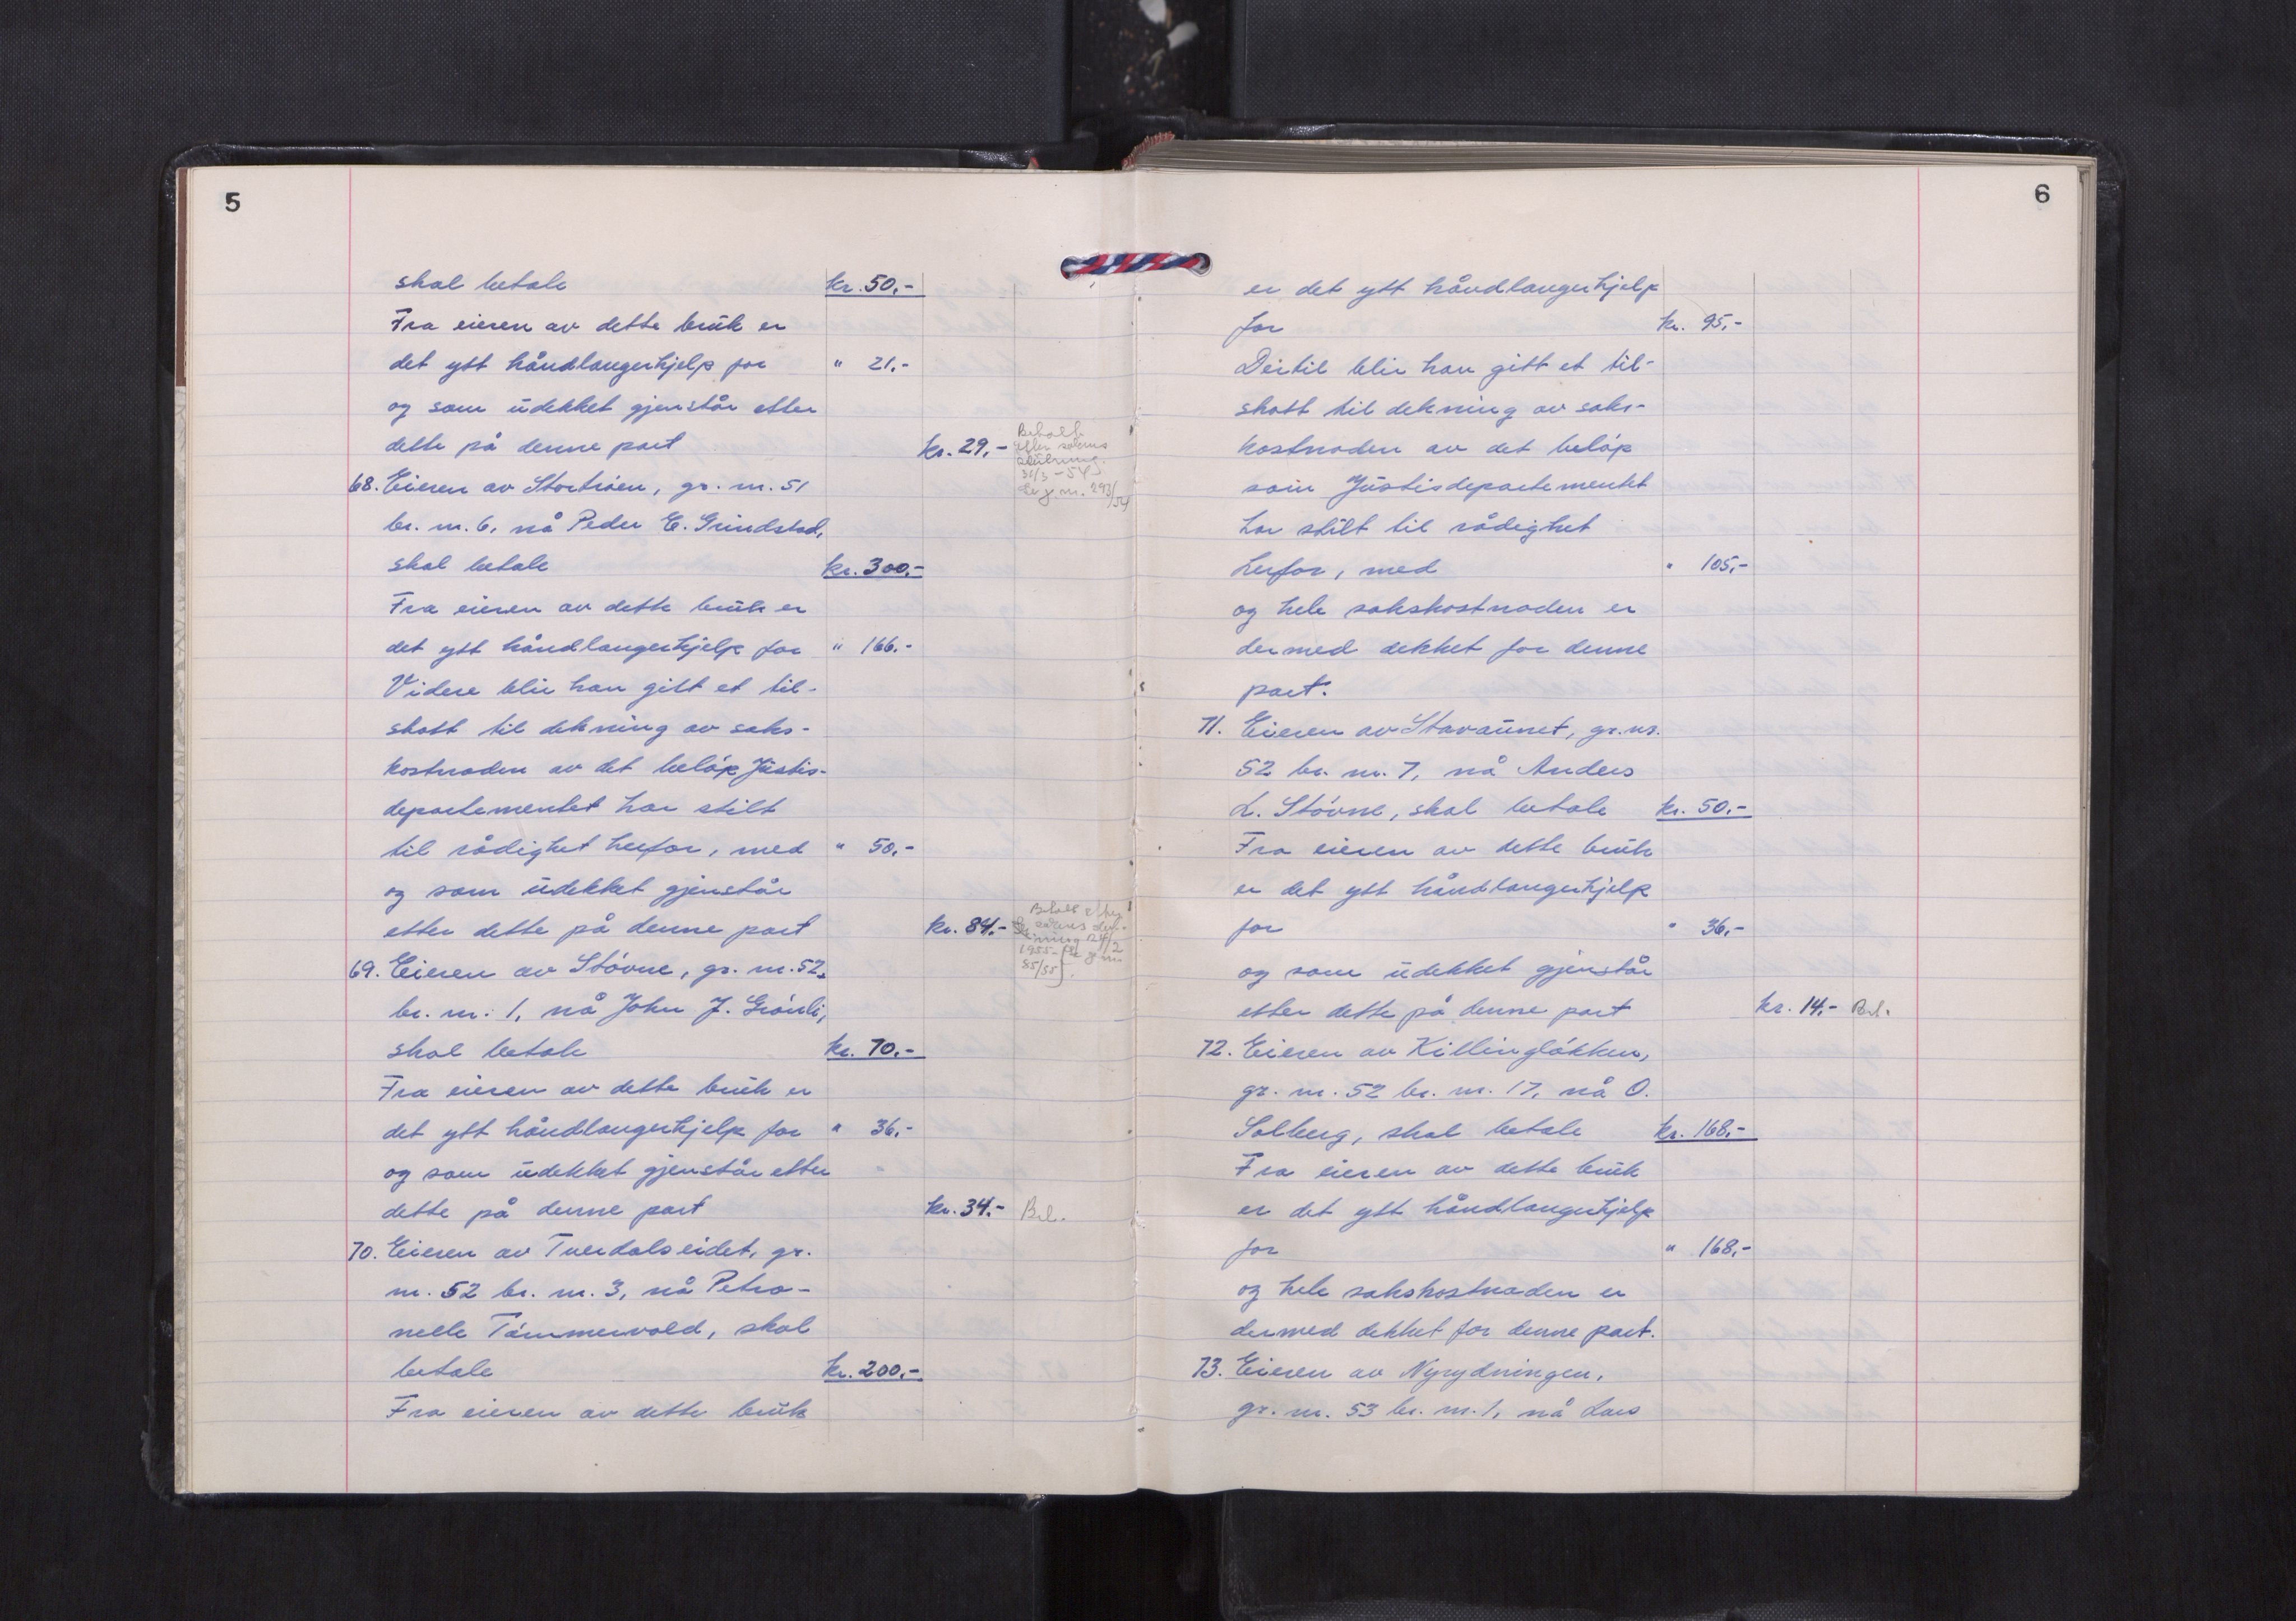 5
skal betale kr. 50,-
Fra eieren av dette bruk er
det ytt håndlangerhjelp for " 21,-
og som udekket gjenstår etter
dette på denne part kr. 29,-
Betalt
efter sakens
31/3-54
nr. 293/54
68. Eieren av Stortrøen, gr. nr. 51
br. nr. 6, nå Peder E. Grindstad,
skal betale kr. 300,-
Fra eieren av dette bruk er
det ytt håndlangerhjelp for " 166,-
Videre blir han gitt et til-
skott til dekning av saks-
kostnaden av det beløp Justis-
departementet har stilt
til rådighet herfor, med " 50,-
og som udekket gjenstår
etter dette på denne part kr. 84,-
Betalt efter
sakens
1955
85/55
69. Eieren av Støvne, gr. nr. 52,
br. nr. 1, nå John J. Grønli,
skal betale kr. 70,-
Fra eieren av dette bruk er
det ytt håndlangerhjelp for " 36,-
og som udekket gjenstår etter
dette på denne part kr. 34,- Bet.
70. Eieren av Tverdalseidet, gr.
nr. 52 br. nr. 3, nå Petro-
nelle Tømmervold, skal
betale kr. 200,-
Fra eieren av dette bruk
6
er det ytt håndlangerhjelp
for kr. 95,-
Dertil blir han gitt et til-
skott til dekning av saks-
kostnaden av det beløp
som Justisdepartementet
har stilt til rådighet
herfor, med " 105,-
og hele sakskostnaden er
dermed dekket for denne
part.
71. Eieren av Stavaunet, gr. nr.
52 br. nr. 7, nå Anders
L. Støvne, skal betale kr. 50,-
Fra eieren av dette bruk
er det ytt håndlangerhjelp
for " 36,-
og som udekket gjenstår
etter dette på denne part kr. 14,- Bet.
72. Eieren av Killingløkken,
gr. nr. 52 br. nr. 17, nå O.
Solberg, skal betale kr. 168,-
Fra eieren av dette bruk
er det ytt håndlangerhjelp
for " 168,-
og hele sakskostnaden er
dermed dekket for denne part.
73. Eieren av Nyrydningen,
gr. nr. 53 br. nr. 1, nå Lars